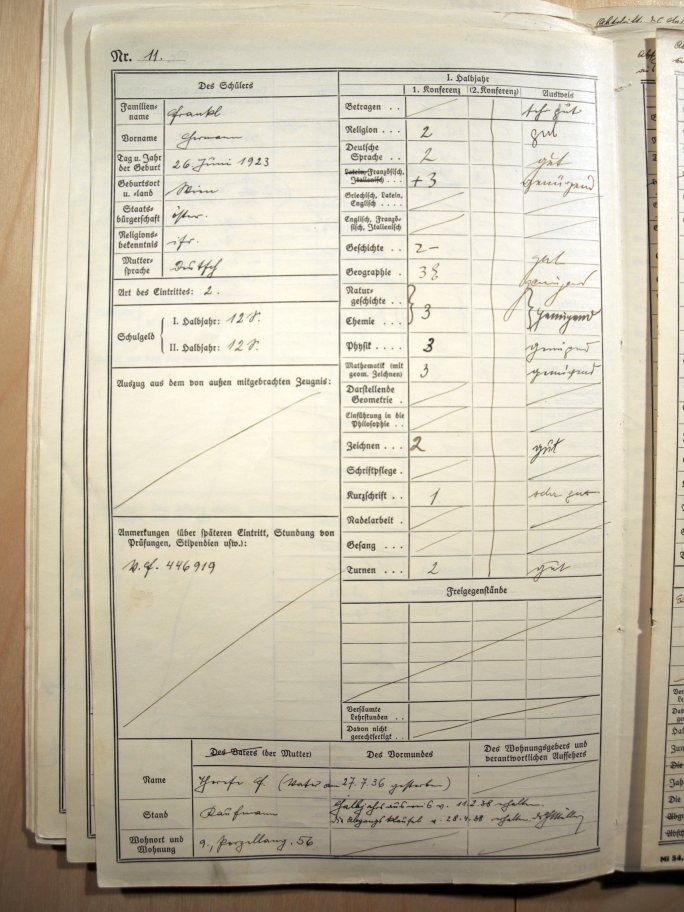 Nr. 11.
Des Schülers
Familien-
name Frankl
Vorname Hermann
Tag u. Jahr
der Geburt 26. Juni 1923
Geburtsort
u. =land Wien
Staats-
bürgerschaft öster.
Religions-
bekenntnis isr.
Mutter-
sprache Deutsch
Art des Eintrittes: 2.
Schulgeld
I. Halbjahr: 12 S.
II. Halbjahr: 12 S.
Auszug aus dem von außen mitgebrachten Zeugnis:
Anmerkungen (über späteren Eintritt, Stundung von
Prüfungen, Stipendien usw.):
446919
I. Halbjahr
1. Konferenz (2. Konferenz) Ausweis
Betragen . . Sehr gut
Religion . . 2 gut
Deutsche
Sprache . . 2 gut
Latein, Französisch,
Italienisch . . . +3 genügend
Griechisch, Latein,
Englisch . . . .
Englisch, Franzö-
sisch, Italienisch
Geschichte . . 2- gut
Geographie . 3 genügend
Natur-
geschichte . .
Chemie . . . 3 Genügend
Physik . . . . 3 genügend
Mathematik (mit
geom. Zeichnen) 3 genügend
Darstellende
Geometrie .
Einführung in die
Philosophie . .
Zeichnen . . . 2 gut
Schriftpflege .
Kurzschrift . . 1 sehr gut
Nadelarbeit .
Gesang . . .
Turnen . . . 2 gut
Freigegenstände
Versäumte
Lehrstunden . .
Davon nicht
gerechtfertigt . .
Des Vaters (der Mutter) Des Vormundes Des Wohnungsgebers und
verantwortlichen Aufsehers
Name Therese F. (Vater am 27.7.36 gestorben)
Stand Kaufmann
Halbjahrsausweis v. 11.2.38 erhalten.
Die Abgangsklausel a. 28.4.38 erhalten
Wohnort und
Wohnung 9., Porzellang. 56
Mi 34.